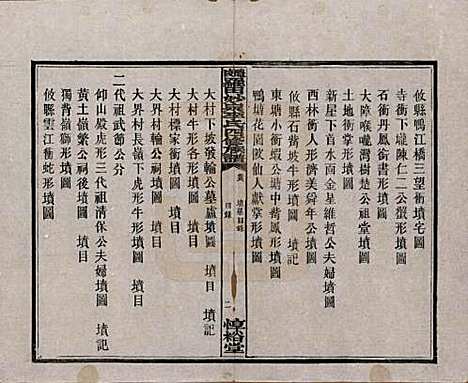 攸縣鴨江橋三望衝墳宅圖
寺衝下壠陳仁二公螢形墳圖
石衝對面獅形墳圖
大障喉嚨灣樹楚公祖堂圖
土地衝掌形墳圖
新屋下首水南金星維哲公夫婦墳圖
西林衝人形濟美舜年公墳圖
攸縣石觜坡牛形墳圖
東塘小衝蝦公塘中觜鳳形墳圖
鴨塘花園歐仙人獻掌形墳圖
四修族譜
卷
墳墓目錄
目錄
二
惇裕堂
大村下坡發輪公墓廬墳圖 墳記
大村牛形各形墳圖 墳目
大村輪公祠墳圖 墳目
大村標家衝墳圖 墳目
大界村長嶺下虎形牛形墳圖
大界村墳圖 墳目
二代祖武節公分
仰山殿虎形三代祖清保公夫婦墳圖 墳記
黃土嶺繁公祠後墳圖 墳目
獨背嶺獅形墳圖
攸縣雲江衝蛇形墳圖